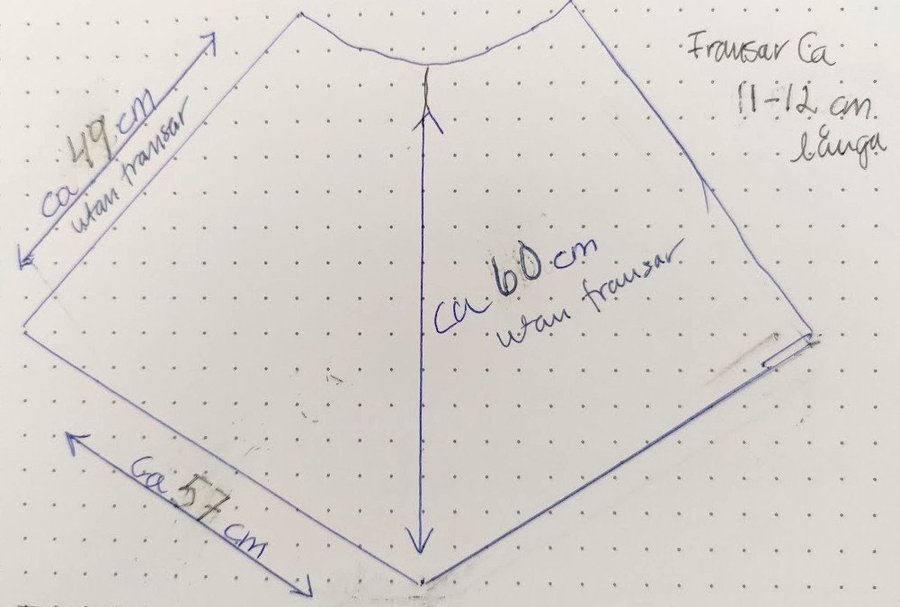 Fransar Ca
11-12 cm
långa
ca 49 cm
utan fransar
ca 60 cm
utan fransar
ca 57 cm